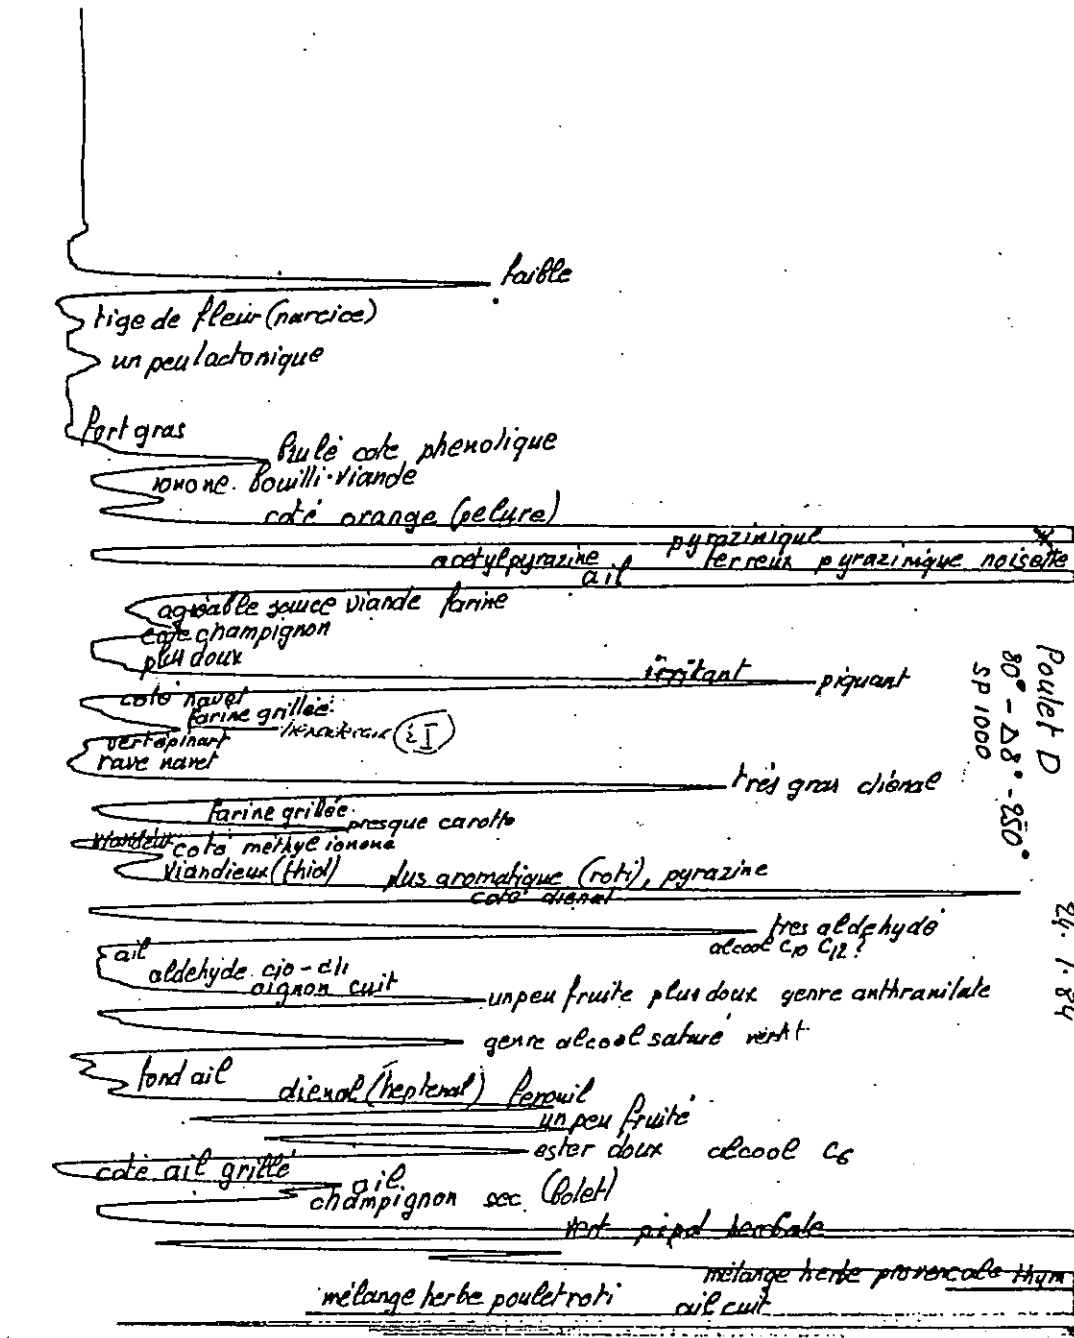 faible
tige de fleur (narcice)
un peu lactonique
fort gras
brulé coté phenolique
ionone. bouilli-viande
coté orange (pelure)
pyrazinique
acetylpyrazine terreux pyrazinique noisette
ail
agréable sauce viande farine
coté champignon
plus doux
irritant piquant
coté navet
farine grillée
vert épinart
rave navet
très gras diénal
farine grillée
presque carotte
viandeux coté methyl ionone
viandieux (thiol) plus aromatique (roti), pyrazine
coté diénal
tres aldehyde
alcool C10 C12?
ail
aldehyde c10-c11
oignon cuit
un peu fruite plus doux genre anthranilate
genre alcool saturé
fond ail
diénal (heptenal) fenouil
un peu fruité
ester doux alcool C6
coté ail grillé
ail.
champignon sec (bolet)
vert herbale
mélange herbe provencale thym
mélange herbe poulet roti ail cuit
Poulet D
80° - Δ8° - 250°
SP 1000
24. 1. 84